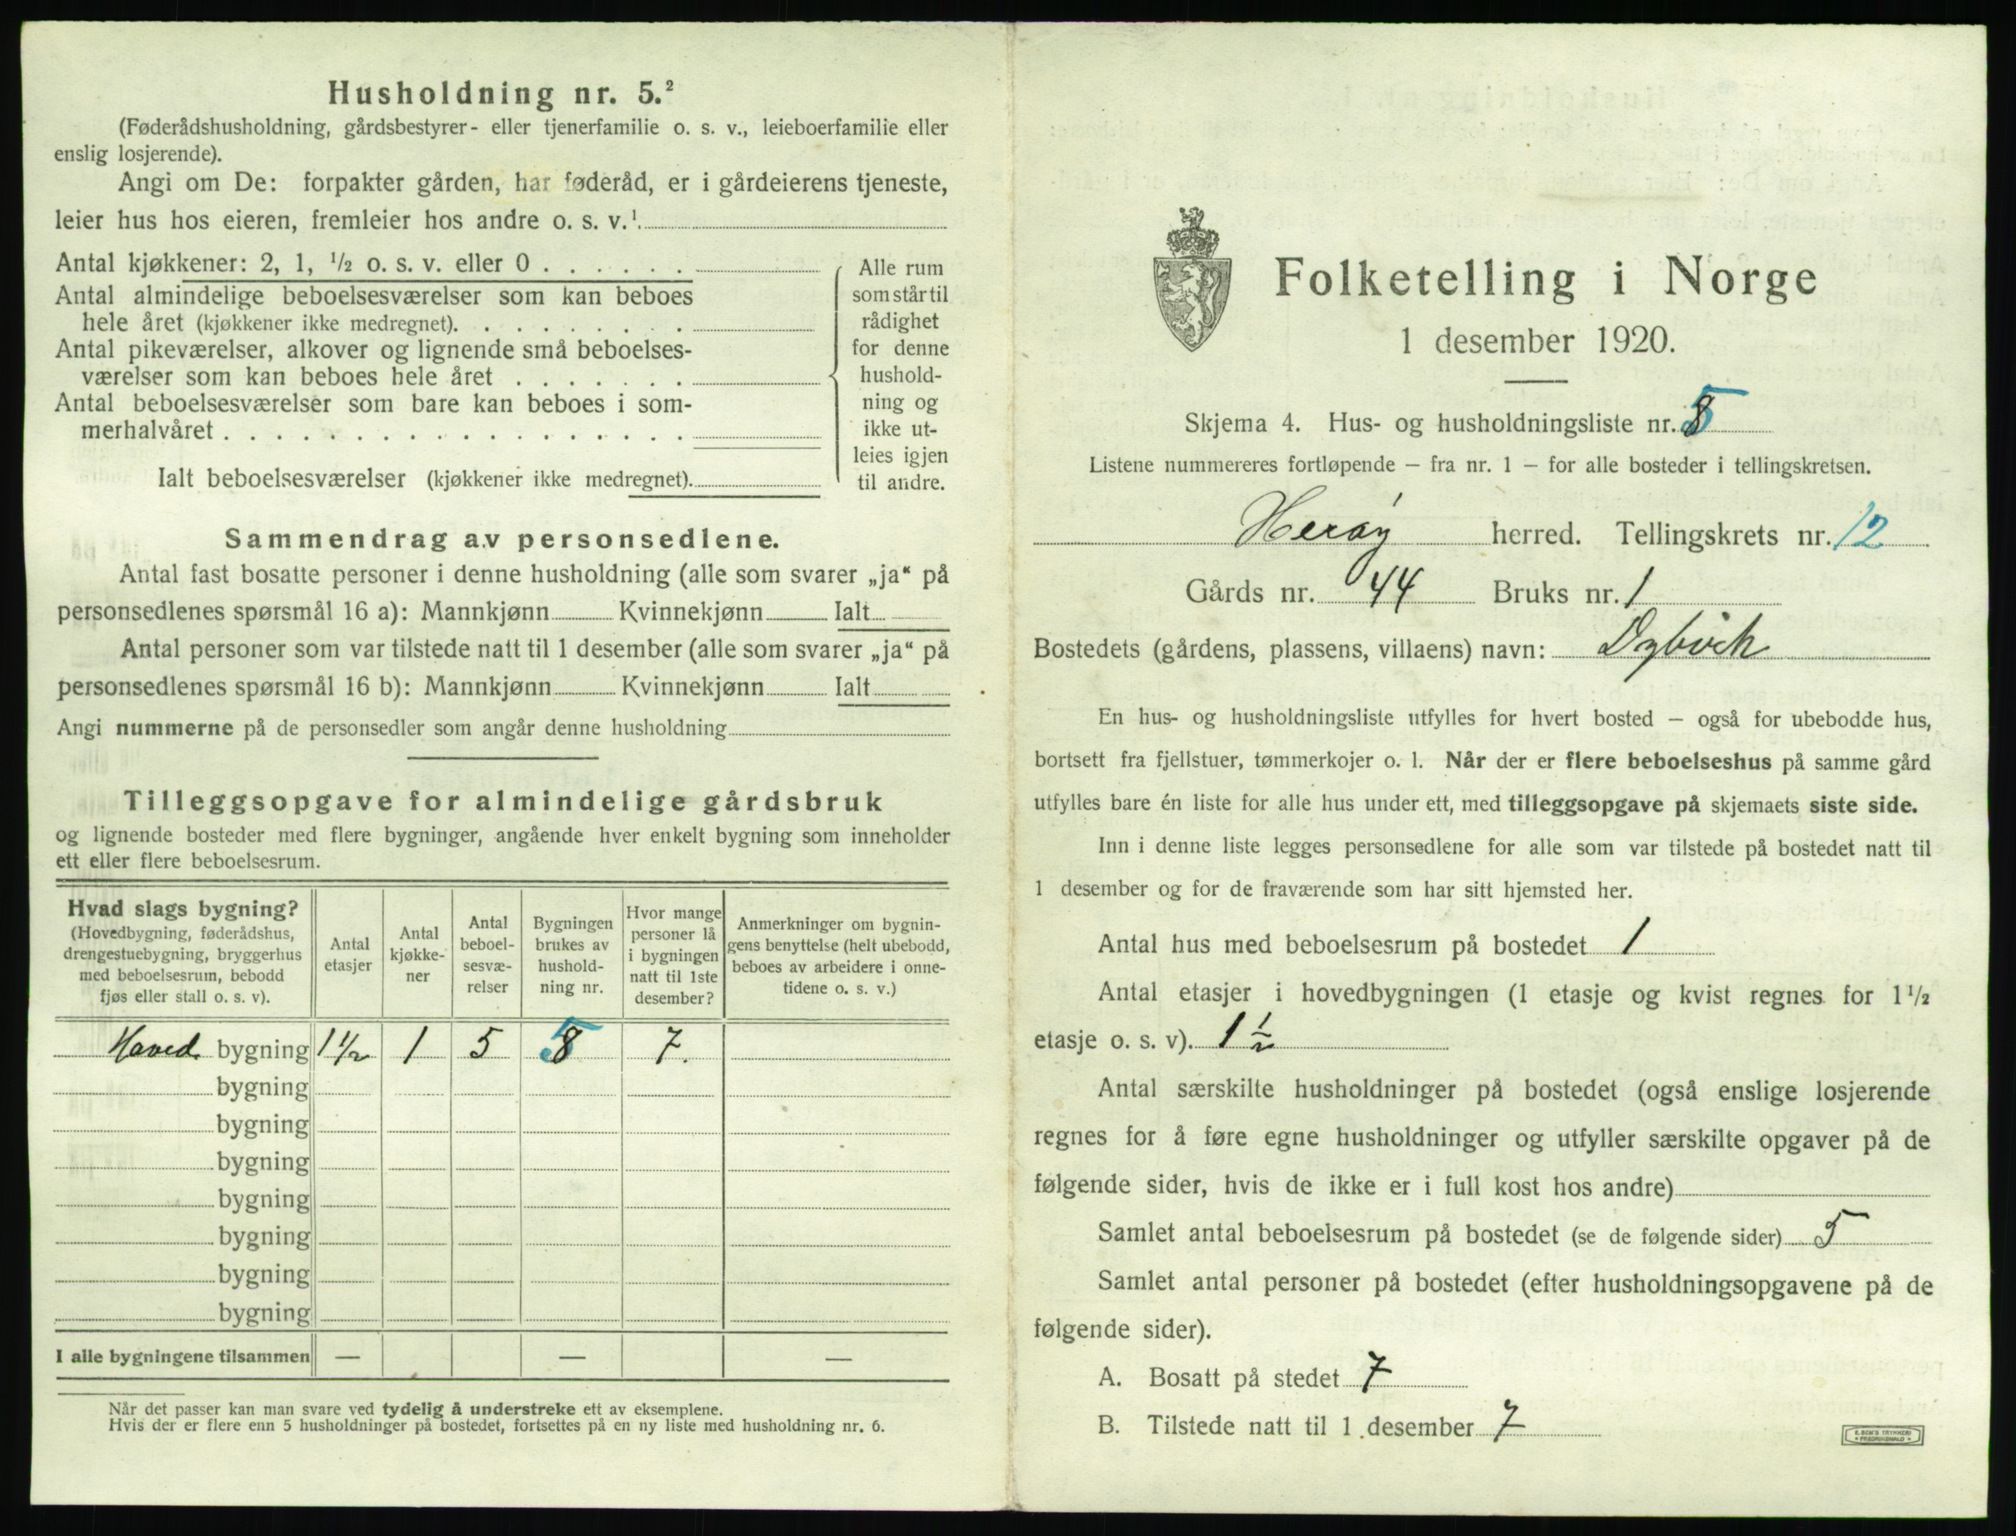 Husholdning nr. 5.²
(Føderådshusholdning, gårdsbestyrer- eller tjenerfamilie o. s. v., leieboerfamilie eller
enslig losjerende).
Angi om De: forpakter gården, har føderåd, er i gårdeierens tjeneste,
leier hus hos eieren, fremleier hos andre o. s. v.¹
Antal kjøkkener: 2, 1, ½ o. s. v. eller 0 . . . . . .
Antal almindelige beboelsesværelser som kan beboes
hele året (kjøkkener ikke medregnet). . . . . . . . .
Antal pikeværelser, alkover og lignende små beboelses-
værelser som kan beboes hele året . . . . . . .
Antal beboelsesværelser som bare kan beboes i som-
merhalvåret . . . . . . . . . . . . . . . . . .
Ialt beboelsesværelser (kjøkkener ikke medregnet).
Alle rum
som står til
rådighet
for denne
hushold-
ning og
ikke ut-
leies igjen
til andre.
Sammendrag av personsedlene.
Antal fast bosatte personer i denne husholdning (alle som svarer „ja“ på
personsedlenes spørsmål 16 a): Mannkjønn Kvinnekjønn Ialt
Antal personer som var tilstede natt til 1 desember (alle som svarer „ja“ på
personsedlenes spørsmål 16 b): Mannkjønn Kvinnekjønn Ialt
Angi nummerne på de personsedler som angår denne husholdning
Tilleggsopgave for almindelige gårdsbruk
og lignende bosteder med flere bygninger, angående hver enkelt bygning som inneholder
ett eller flere beboelsesrum.
Hvad slags bygning?
(Hovedbygning, føderådshus,
drengestuebygning, bryggerhus
med beboelsesrum, bebodd
fjøs eller stall o. s. v).
Antal
etasjer
Antal
kjøkke-
ner
Antal
beboel-
sesvæ-
relser
Bygningen
brukes av
hushold-
ning nr.
Hvor mange
personer lå
i bygningen
natt til 1ste
desember?
Anmerkninger om bygnin-
gens benyttelse (helt ubebodd,
beboes av arbeidere i onne-
tidene o. s. v.)
Hoved bygning 1½ 1 5 8 5 7.
bygning
bygning
bygning
bygning
bygning
bygning
bygning
I alle bygningene tilsammen — — —
Når det passer kan man svare ved tydelig å understreke ett av eksemplene.
Hvis der er flere enn 5 husholdninger på bostedet, fortsettes på en ny liste med husholdning nr. 6.
Folketelling i Norge
1 desember 1920.
Skjema 4. Hus- og husholdningsliste nr. 8 5
Listene nummereres fortløpende – fra nr. 1 – for alle bosteder i tellingskretsen.
Herøy herred. Tellingskrets nr. 12
Gårds nr. 44 Bruks nr. 1
Bostedets (gårdens, plassens, villaens) navn: Dybvik
En hus- og husholdningsliste utfylles for hvert bosted – også for ubebodde hus,
bortsett fra fjellstuer, tømmerkojer o. l. Når der er flere beboelseshus på samme gård
utfylles bare én liste for alle hus under ett, med tilleggsopgave på skjemaets siste side.
Inn i denne liste legges personsedlene for alle som var tilstede på bostedet natt til
1 desember og for de fraværende som har sitt hjemsted her.
Antal hus med beboelsesrum på bostedet 1
Antal etasjer i hovedbygningen (1 etasje og kvist regnes for 1½
etasje o. s. v). 1½
Antal særskilte husholdninger på bostedet (også enslige losjerende
regnes for å føre egne husholdninger og utfyller særskilte opgaver på de
følgende sider, hvis de ikke er i full kost hos andre)
Samlet antal beboelsesrum på bostedet (se de følgende sider) 5
Samlet antal personer på bostedet (efter husholdningsopgavene på de
følgende sider).
A. Bosatt på stedet 7
B. Tilstede natt til 1 desember 7